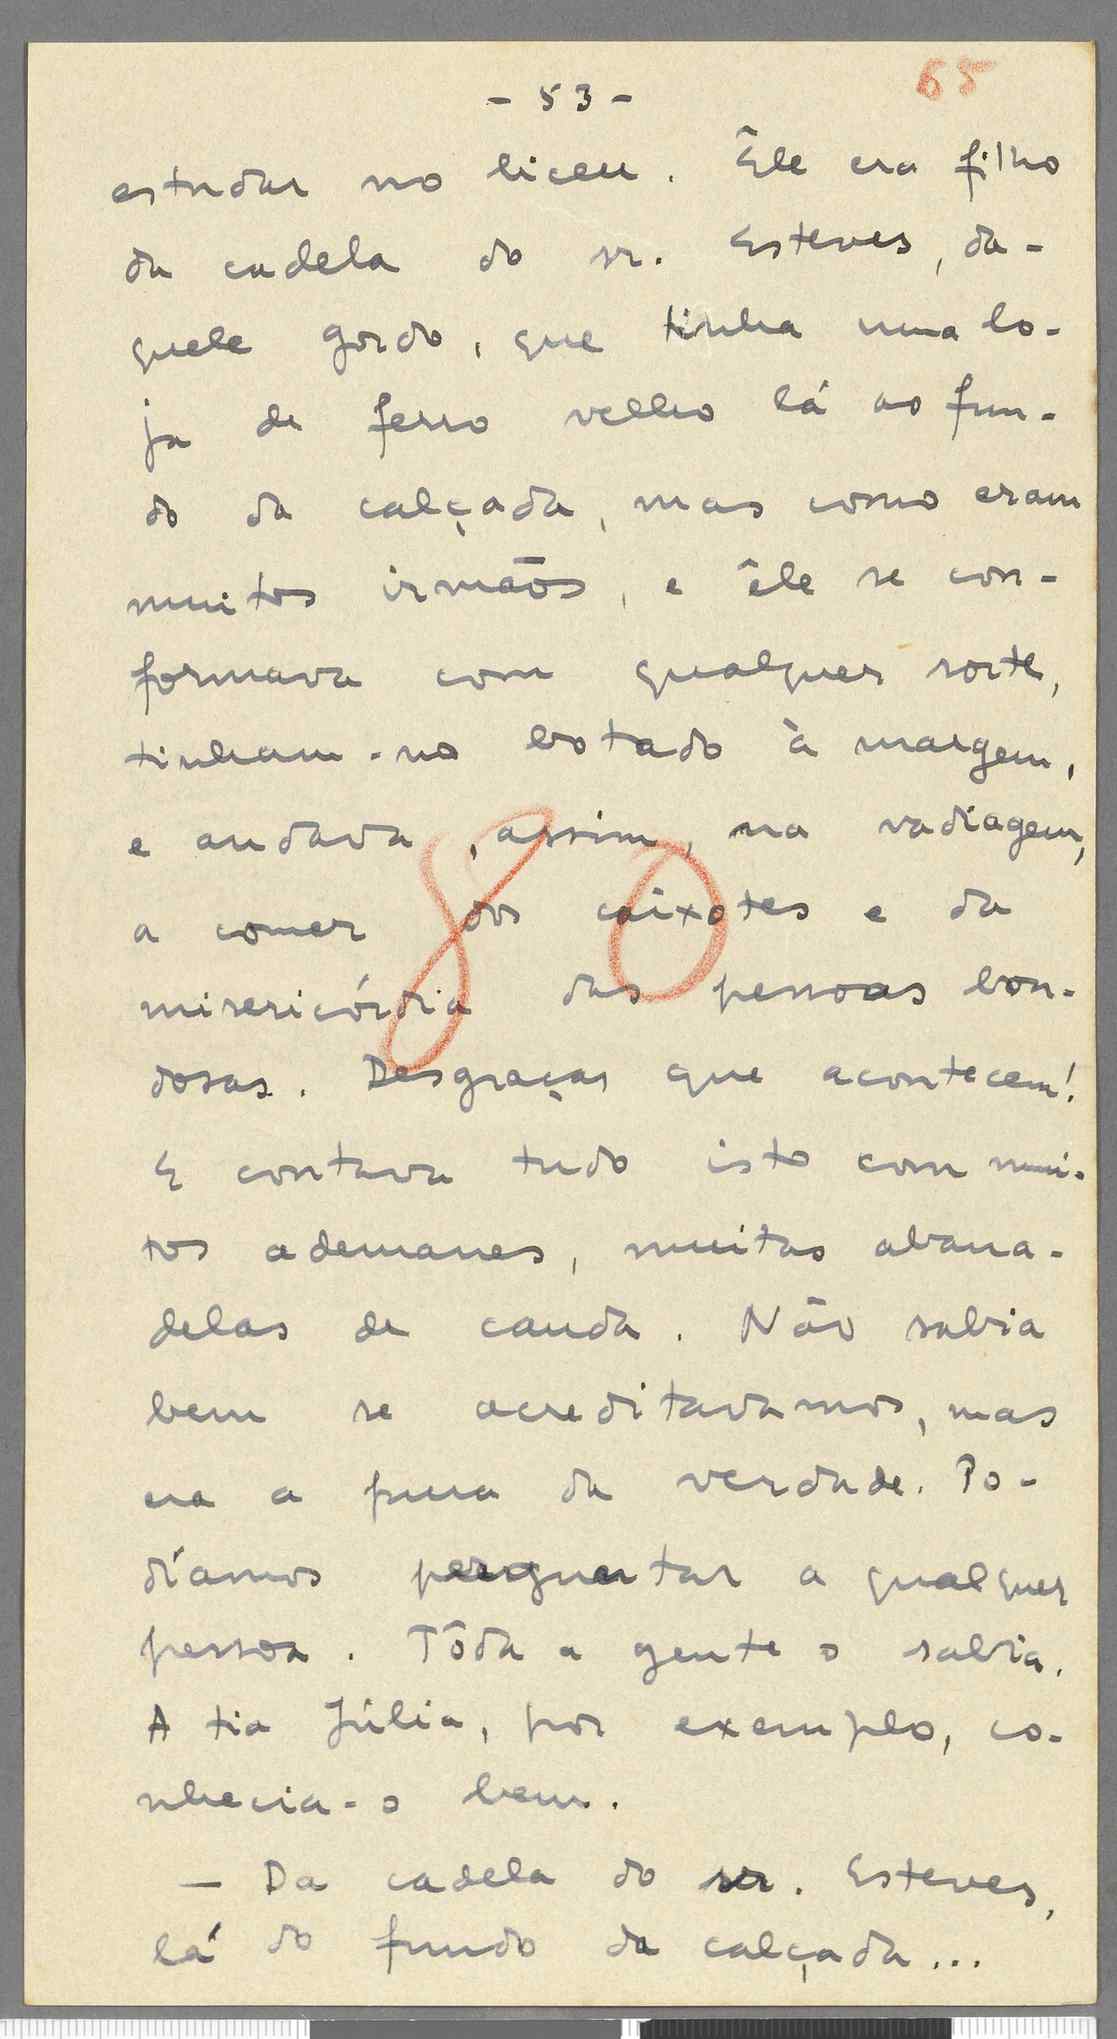 - 53 -
65
estudar no liceu. Êle era filho
da cadela do sr. Esteves, da-
quele gordo, que tinha uma lo-
ja de ferro velho lá ao fun-
do da calçada, mas como eram
muitos irmãos, e êle se con-
formava com qualquer sorte,
tinham-no botado à margem,
e andava, assim, na vadiagem,
a comer dos caixotes e da
80
misericórdia das pessoas bon-
dosas. Desgraças que acontecem!
E contava tudo isto com mui-
tos ademanes, muitas abana-
delas de cauda. Não sabia
bem se acreditavamos, mas
era a pura da verdade. Po-
díamos perguntar a qualquer
pessoa. Tôda a gente o sabia.
A tia Júlia, por exemplo, co-
nhecia-o bem.
— Da cadela do sr. Esteves,
lá do fundo da calçada...